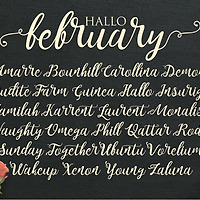 HALLO
february
Amarre Bounhill Carollina Demo
udite Farm Guinea Hallo
amilah Karrent Laurent Monalis
aughty Omega Phill Qattar Rod
Sunday Together Ubuntu Vorelum
Wakeup Xenon Young Zaluna